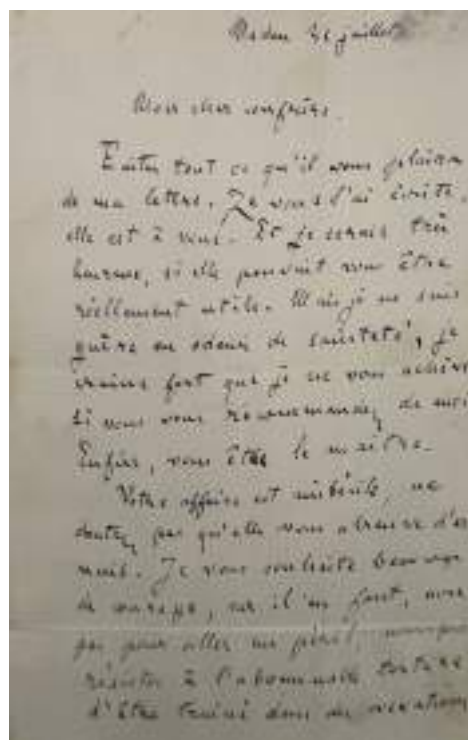 Médan 31 juillet
Mon cher confrère.
Faites tout ce qu'il vous plaira
de ma lettre. Je vous l'ai écrite,
elle est à vous. Et je serais très
heureux, si elle pouvait vous être
réellement utile. Mais je ne suis
guère en odeur de sainteté, je
crains fort que je ne vous achève
si vous vous recommandez de moi
Enfin, vous êtes le maître.
Votre affaire est imbécile, ne
doutez pas qu'elle vous abreuve d'en
nuis. Je vous souhaite beaucoup
de courage, car il en faut, non
pas pour aller en péril, mais pour
résister à l'abominable torture
d'être traîné dans des vexations